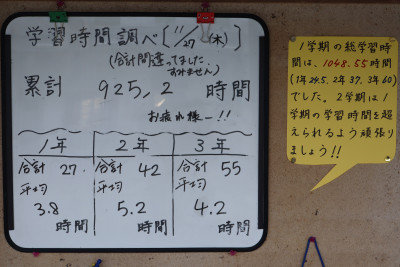 学習時間調べ〔11/27(木)〕
(合計間違ってました。
すみません)
累計 925,2 時間
お疲れ様ー!!
1年 2年 3年
合計 27. 合計 42 合計 55
平均 平均 平均
3.8 5.2 4.2
時間 時間 時間
1学期の総学習時
間は、1048.55時間
(1年24.5、2年37、3年60)
でした。2学期は1
学期の学習時間を超
えられるよう頑張り
ましょう!!